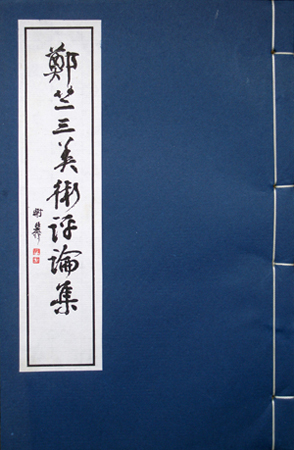 鄭竺三美術評論集